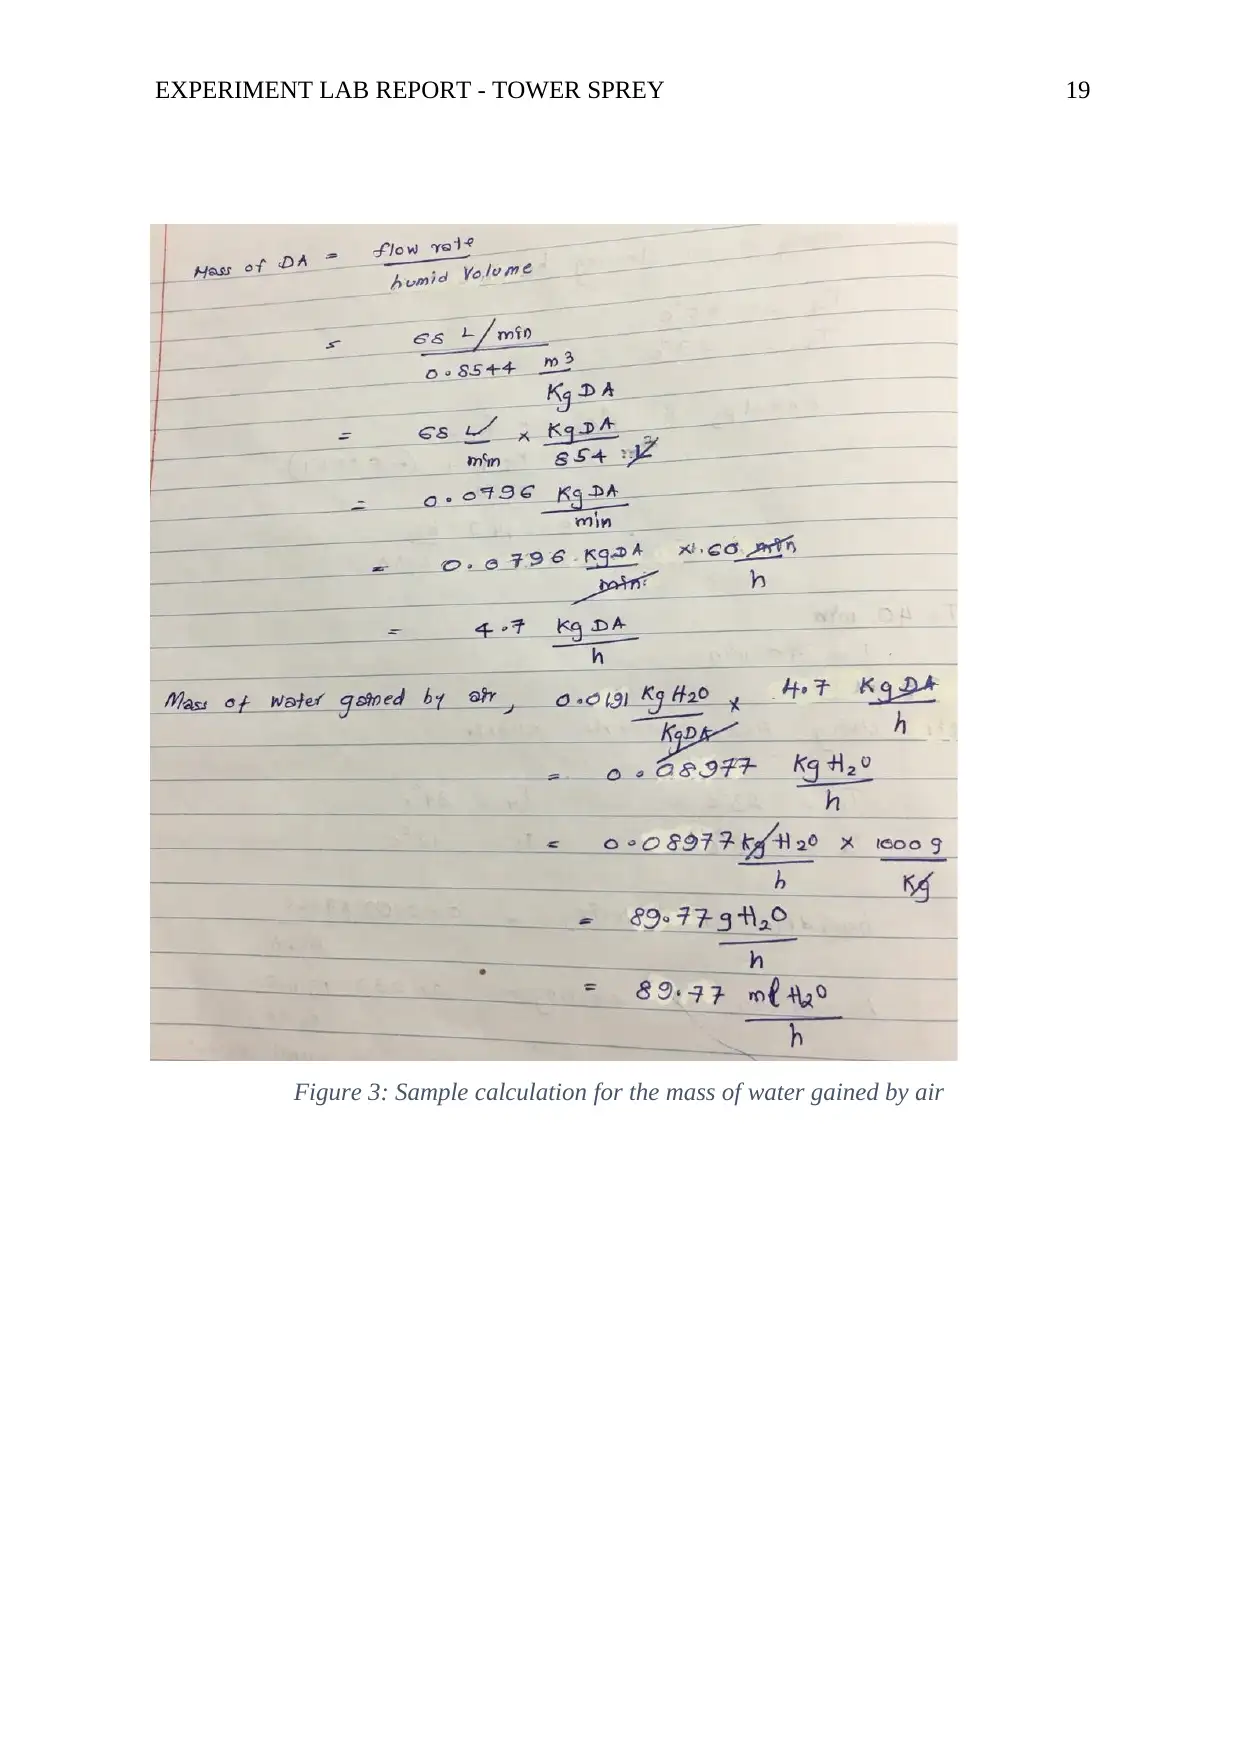 EXPERIMENT LAB REPORT - TOWER SPREY 19
Mass of DA = flow rate
humid Volume
= 68 L/min
0.8544 m3
Kg DA
= 68 L × KgDA
min 854 L
= 0.0796 Kg DA
min
= 0.0796 KgDA × 60 min
min h
= 4.7 Kg DA
h
Mass of water gained by air, 0.0191 Kg H2O × 4.7 KgDA
KgDA h
= 0.08977 Kg H2O
h
= 0.08977 kg H2O × 1000 g
h Kg
= 89.77 g H2O
h
= 89.77 ml H2O
h
Figure 3: Sample calculation for the mass of water gained by air